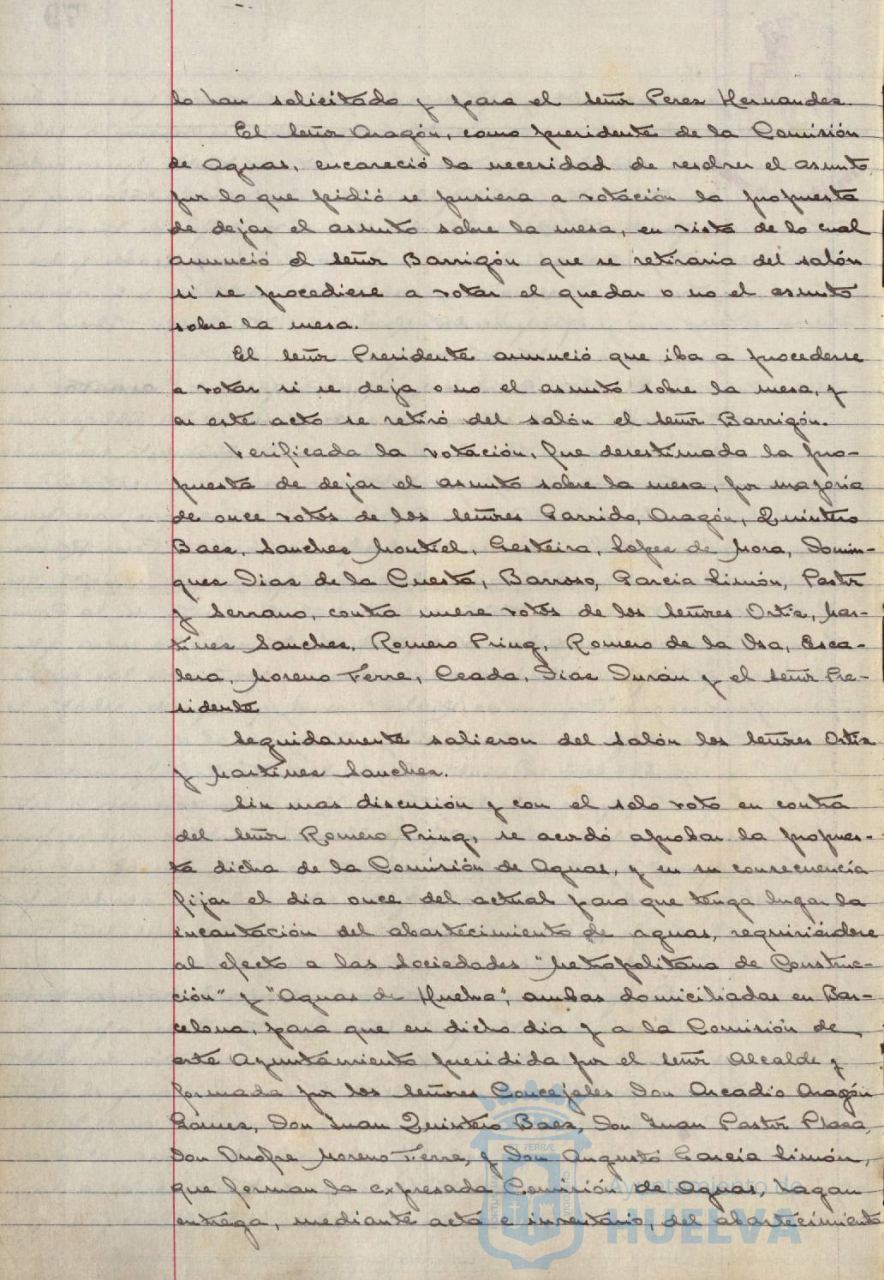 lo han solicitado y para el señor Perez Hernandez.
El señor Aragón, como presidente de la Comisión
de Aguas, encareció la necesidad de resolver el asunto,
por lo que pidió se pusiera a votación la propuesta
de dejar el asunto sobre la mesa, en vista de lo cual
anunció el señor Barrigón que se retiraria del salón
si se procediese a votar el quedar o no el asunto
sobre la mesa.
El señor Presidente anunció que iba a procederse
a votar si se deja o no el asunto sobre la mesa, y
en este acto se retiró del salón el señor Barrigón.
Verificada la votación, fue desestimada la pro-
puesta de dejar el asunto sobre la mesa, por mayoria
de once votos de los señores Garrido, Aragón, Quintero
Baez, Sanchez Montiel, Gesteira, Lopez de Mora, Domin-
guez Diaz de la Cuesta, Barroso, Garcia Limón, Pastor
y Serrano, contra nueve votos de los señores Ortiz, Mar-
tinez Sanchez, Romero Pring, Romero de la Osa, Esca-
lera, Moreno Ferre, Ceada, Diaz Durán y el señor Pre-
sidente
Seguidamente salieron del salón los señores Ortiz
y Martinez Sanchez.
Sin mas discusión y con el solo voto en contra
del señor Romero Pring, se acordó aprobar la propues-
ta dicha de la Comisión de Aguas, y en su consecuencia
fijar el dia once del actual para que tenga lugar la
incautación del abastecimiento de aguas, requiriéndose
al efecto a las Sociedades "Metropolitana de Construc-
ción" y "Aguas de Huelva", ambas domiciliadas en Bar-
celona, para que en dicho dia y a la Comisión de
este Ayuntamiento presidida por el señor Alcalde y
formada por los señores Concejales Don Arcadio Aragón
Gómez, Don Juan Quintero Baez, Don Juan Pastor Plaza,
Don Onofre Moreno Ferre, y Don Augusto García Limón,
que forman la expresada Comisión de Aguas, hagan
entrega, mediante acta e inventario, del abastecimiento
Ayuntamiento de
HUELVA